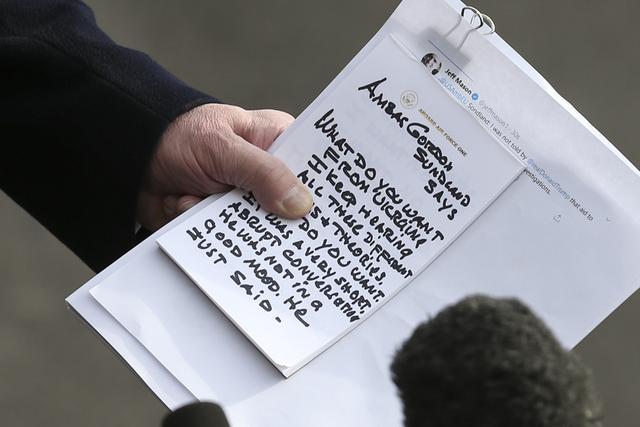 Jeff Mason @jeffmason1 · 30s
@USAmbEU Sondland: I was not told by @realDonaldTrump that aid to
investigations.
ABOARD AIR FORCE ONE
AMBAS GORDON
SUNDLAND
SAYS
WHAT DO YOU WANT
FROM UKRAINE
I KEEP HEARING
ALL THESE DIFFERENT
+ THEORIES,
DO YOU WANT
IT WAS A VERY SHORT,
ABRUPT CONVERSATION
HE WAS NOT IN A
GOOD MOOD. HE
JUST SAID -